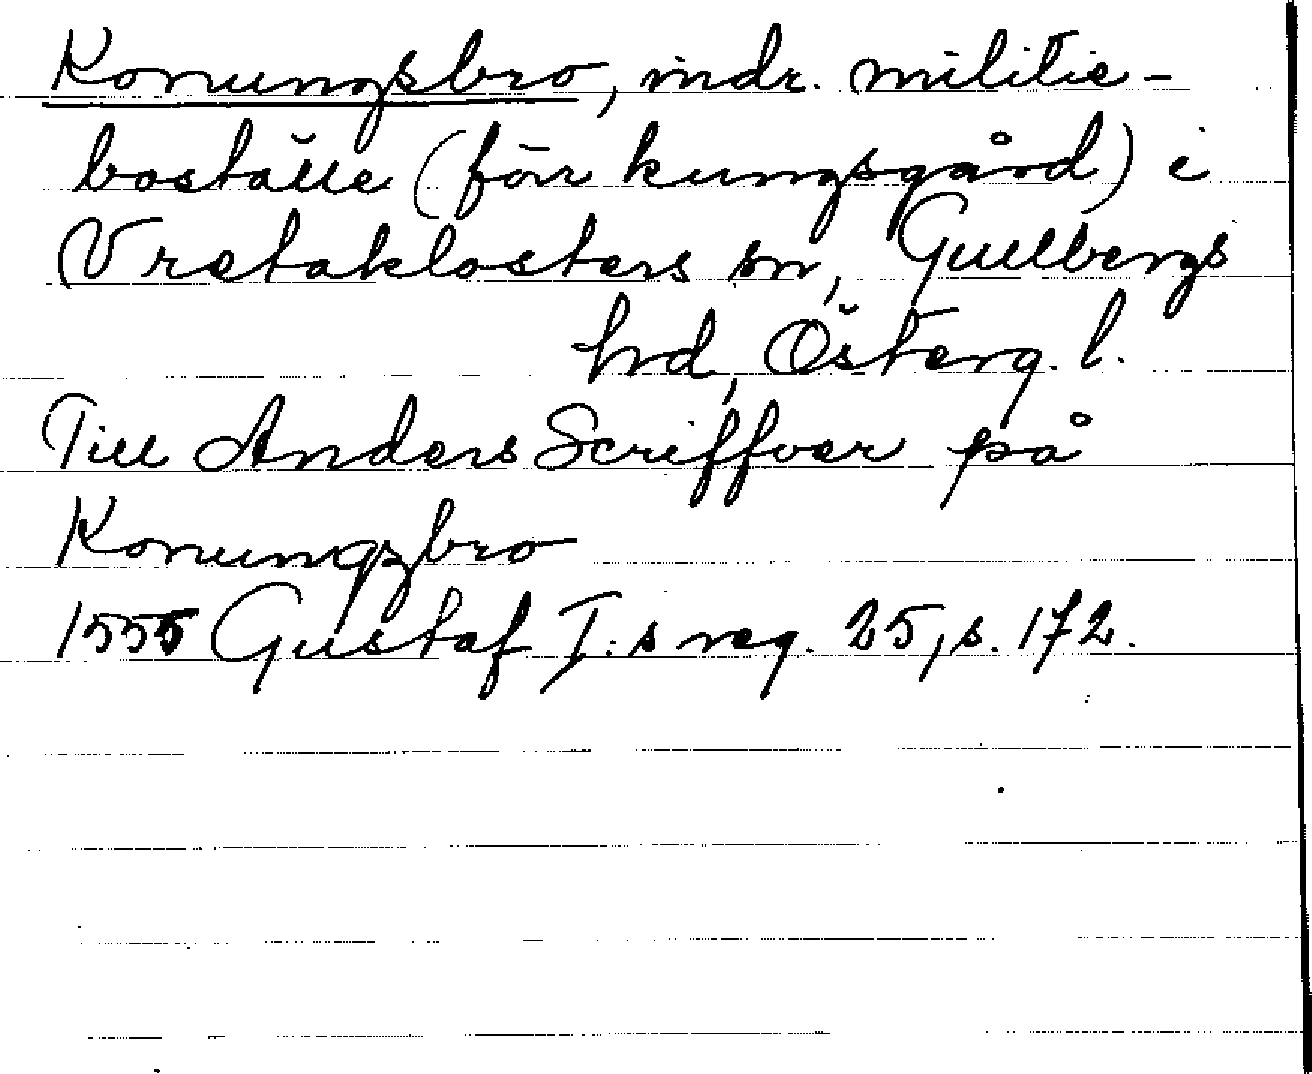 Konungsbro, indr. militie-
boställe (förr kungsgård) i
Vretaklosters sn, Gullbergs
hd, Österg. l.
Till Anders Scriffver på
Konungzbro
1555 Gustaf I:s reg. 25, s. 172.